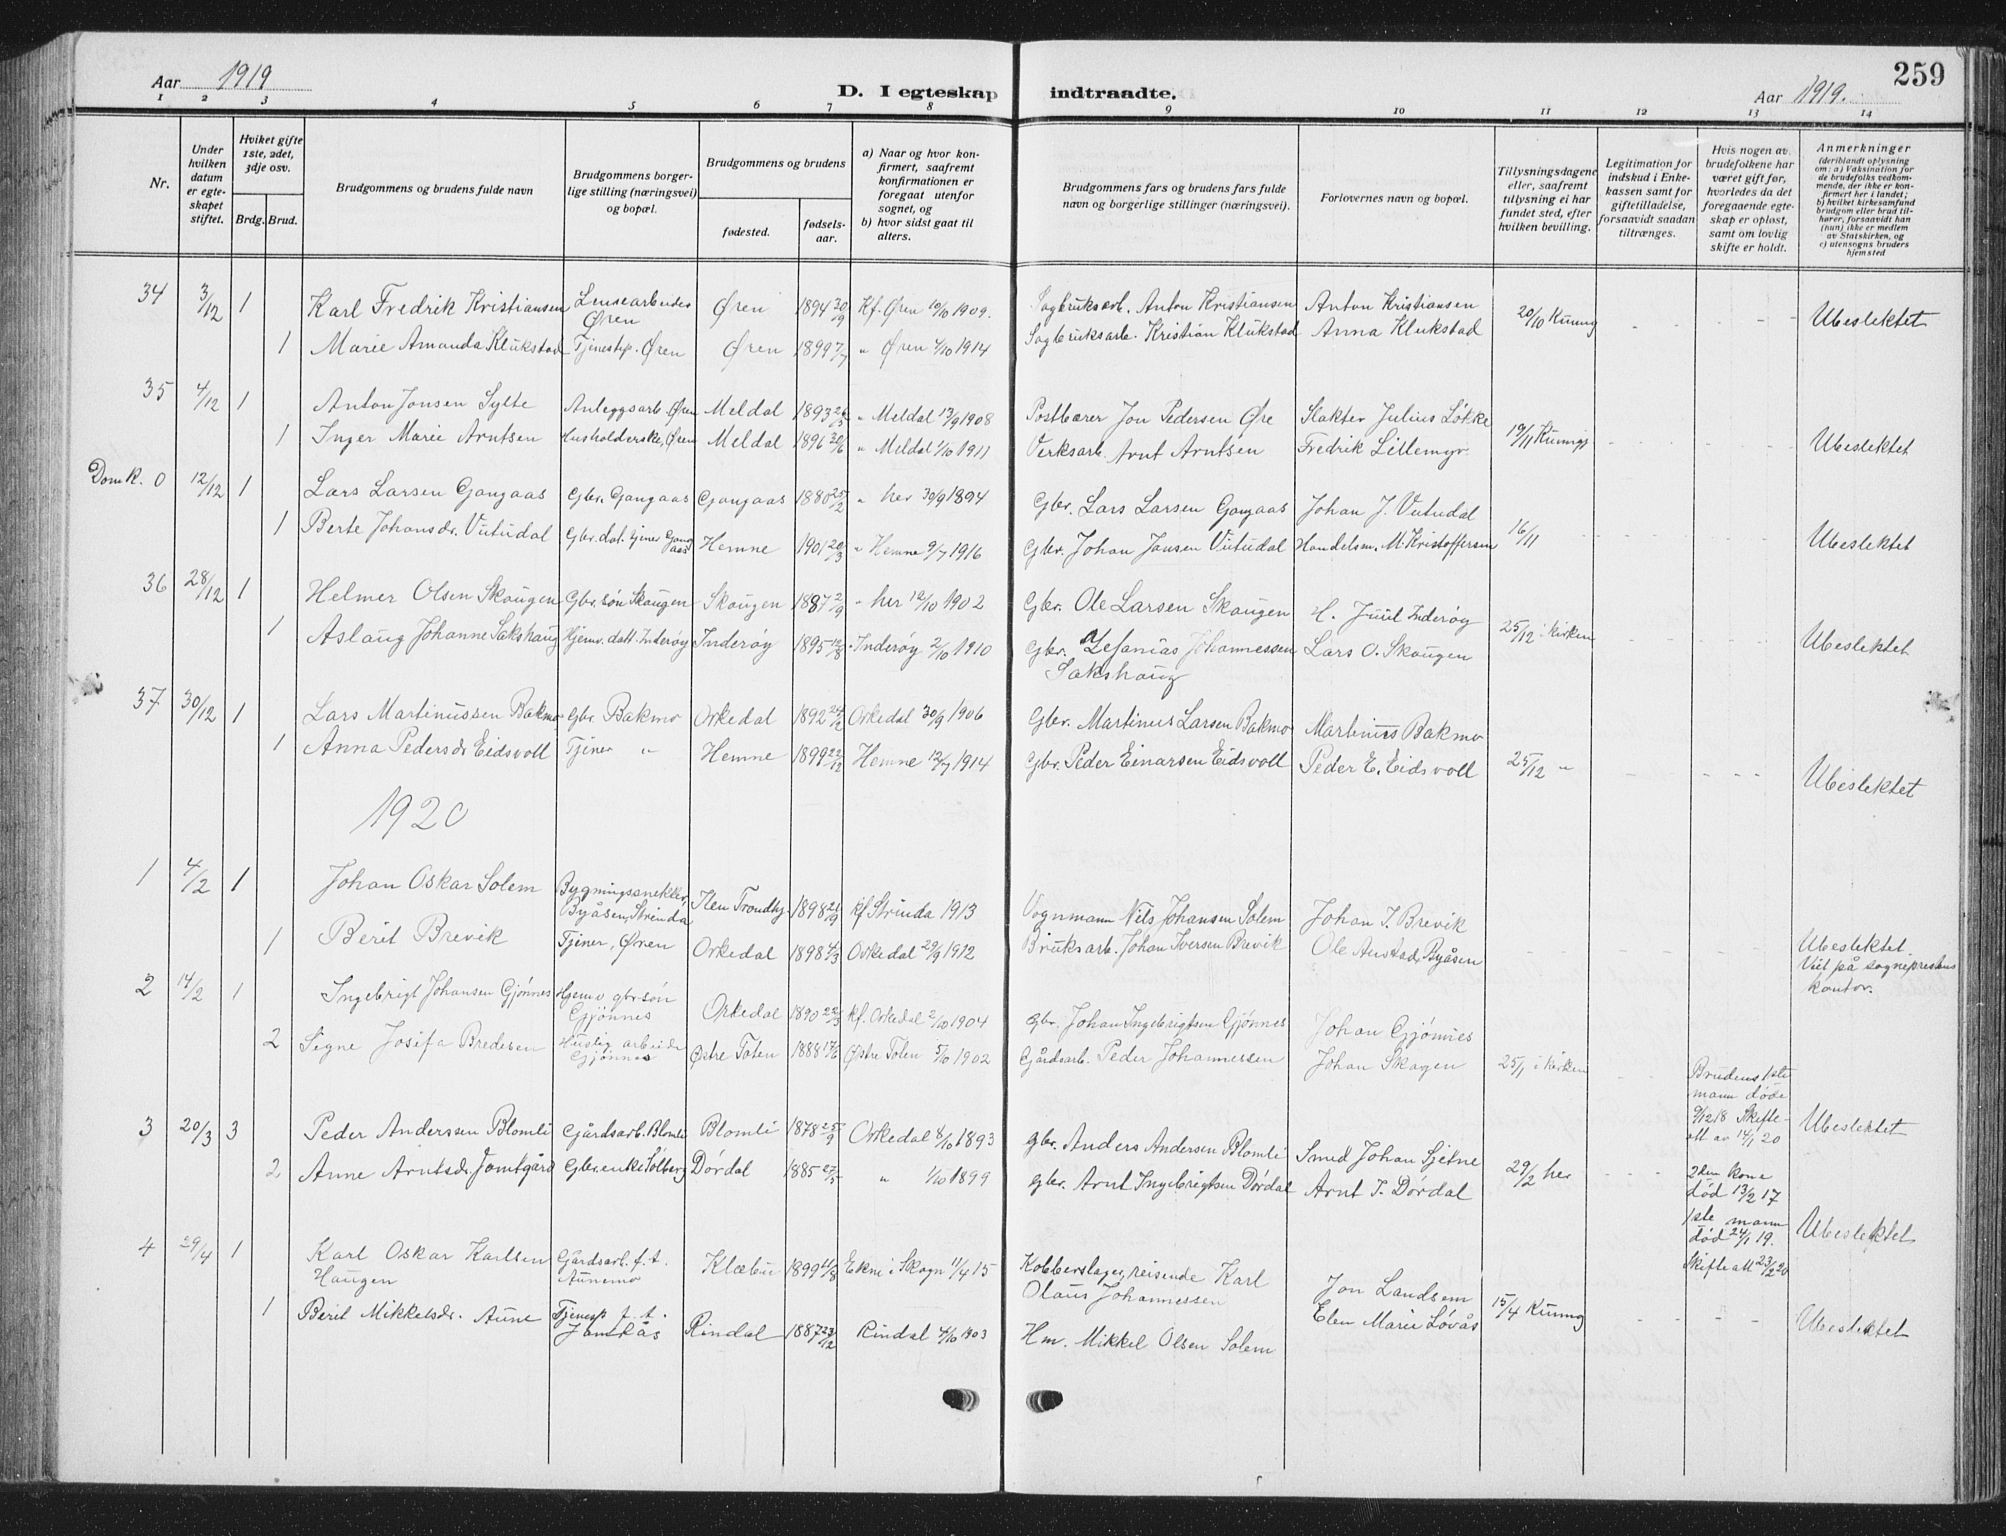 Aar 1919
D. I egteskap indtraadte.
Aar 1919.
259
1 2 3 4 5 6 7 8 9 10 11 12 13 14
Nr.
Under hvilken datum er egteskapet stiftet.
Hviket gifte 1ste, 2det, 3dje osv.
Brdg. Brud.
Brudgommens og brudens fulde navn
Brudgommens borgerlige stilling (næringsvei) og bopæl.
Brudgommens og brudens
fødested.
fødselsaar.
a) Naar og hvor konfirmert, saafremt konfirmationen er foregaat utenfor sognet, og
b) hvor sidst gaat til alters.
Brudgommens fars og brudens fars fulde navn og borgerlige stillinger (næringsvei).
Forlovernes navn og bopæl.
Tillysningsdagene eller, saafremt tillysning ei har fundet sted, efter hvilken bevilling.
Legitimation for indskud i Enkekassen samt for giftetilladelse, forsaavidt saadan tiltrænges.
Hvis nogen av brudefolkene har været gift før, hvorledes da det foregaaende egteskap er opløst, samt om lovlig skifte er holdt.
Anmerkninger
(deriblandt oplysning om: a) Vaksination for de brudefolks vedkommende, der ikke er konfirmert her i landet;
b) hvilket kirkesamfund brudgom eller brud tilhører, forsaavidt han (hun) ikke er medlem av Statskirken, og
c) utensogns bruders hjemsted
34 3/12 1 Karl Fredrik Kristiansen Lensearbeider Øren Øren 1894 30/9 Kf. Øren 10/10 1909. Sagbruksarb. Anton Kristiansen Anton Kristiansen 20/10 Kunng Ubeslektet
1 Marie Amanda Klukstad Tjenestep. Øren Øren 1899 7/7 " Øren 4/10 1914 Sagbruksarb. Kristian Klukstad Anna Klukstad
35 4/12 1 Anton Jonsen Sylte Anleggsarb. Øren Meldal 1893 26/5 " Meldal 13/9 1908 Postbærer Jon Pedersen Øre Slakter Julius Løkke 19/11 Kunngj Ubeslektet
1 Inger Marie Arntsen Husholderske, Øren Meldal 1896 30/6 " Meldal 1/10 1911 Verksarb. Arnt Arntsen Fredrik Lillemyr.
Domk. 0 12/12 1 Lars Larsen Gangaas Gbr. Gangaas Gangaas 1880 25/2 " her 30/9 1894 Gbr. Lars Larsen Gangaas Johan J. Vutudal 16/11 Ubeslektet
1 Berte Johansdr. Vutudal Gbr. dat. tjener Gangaas Hemne 1901 20/3 " Hemne 9/7 1916 Gbr. Johan Jansen Vutudal Handelsm. M. Kristoffersen
36 28/12 1 Helmer Olsen Skaugen Gbr. søn Skaugen Skaugen 1887 2/9 " her 12/10 1902 Gbr. Ole Larsen Skaugen H. Juul Inderøy 25/12 i kirken Ubeslektet
1 Aslaug Johanne Sakshaug Hjemv. datt. Inderøy Inderøy 1895 12/8 " Inderøy 2/10 1910 Gbr. Zefanias Johannessen Sakshaug Lars O. Skaugen
37 30/12 1 Lars Martinussen Bakmo Gbr. Bakmo Orkedal 1892 24/12 Orkedal 30/9 1906 Gbr. Martinus Larsen Bakmo Martinus Bakmo 25/12 " Ubeslektet
1 Anna Pedersdr Eidsvoll Tjener " Hemne 1899 22/12 Hemne 12/7 1914 Gbr. Peder Einarsen Eidsvoll Peder E. Eidsvoll
1920
1 4/2 1 Johan Oskar Solem Bygningssnekker, Byåsen, Strinda Ilen Trondhj. 1898 21/9 kf Strinda 1913 Vognmann Nils Johansen Solem Johan I. Brevik
1 Berit Brevik Tjener, Øren Orkedal 1898 4/3 Orkedal 29/9 1912 Bruksarb. Johan Iversen Brevik Ole Austad, Byåsen Ubeslektet
Viet på sogneprestens kontor.
2 14/2 1 Ingebrigt Johansen Gjønnes Hjemv gbr søn Gjønnes Orkedal 1890 22/3 kf. Orkedal 2/10 1904 Gbr. Johan Ingebrigtsen Gjønnes Johan Gjønnes
2 Signe Josifa Bredesen Huslig arbeide Gjønnes Østre Toten 1888 17/6 Østre Toten 5/10 1902 Gårdsarb. Peder Johannessen Johan Skagen 25/1 i kirken Brudens 1ste mann døde 9/12 18 Skifteatt av 14/1 20 Ubeslektet
3 20/3 3 Peder Anderssen Blomli Gårdsarb. Blomli Blomli 1878 25/9 Orkedal 8/10 1893 gbr. Anders Andersen Blomli Smed Johan Sjetne 29/2 her 2den kone død 13/2 17
2 Anne Arntsdr. Jamtgård Gbr. enke Solberg Dørdal 1885 27/5 " 1/10 1899 gbr. Arnt Ingebrigtsen Dørdal Arnt I. Dørdal 1ste mann død 24/1 19. Skifteatt 23/2 20 Ubeslektet
4 29/4 1 Karl Oskar Karlsen Haugen Gårdsarb. f. t. Aunemo Klæbu 1899 11/8 Ekne i Skogn 11/4 15 Kobberslager, reisende Karl Olaus Johannessen Jon Landsem 15/4 Kunng
1 Berit Mikkelsdr. Aune Tjenesp f. t. Jamkås Rindal 1887 23/12 Rindal 4/10 1903 Hm. Mikkel Olsen Solem Elen Marie Løvås Ubeslektet